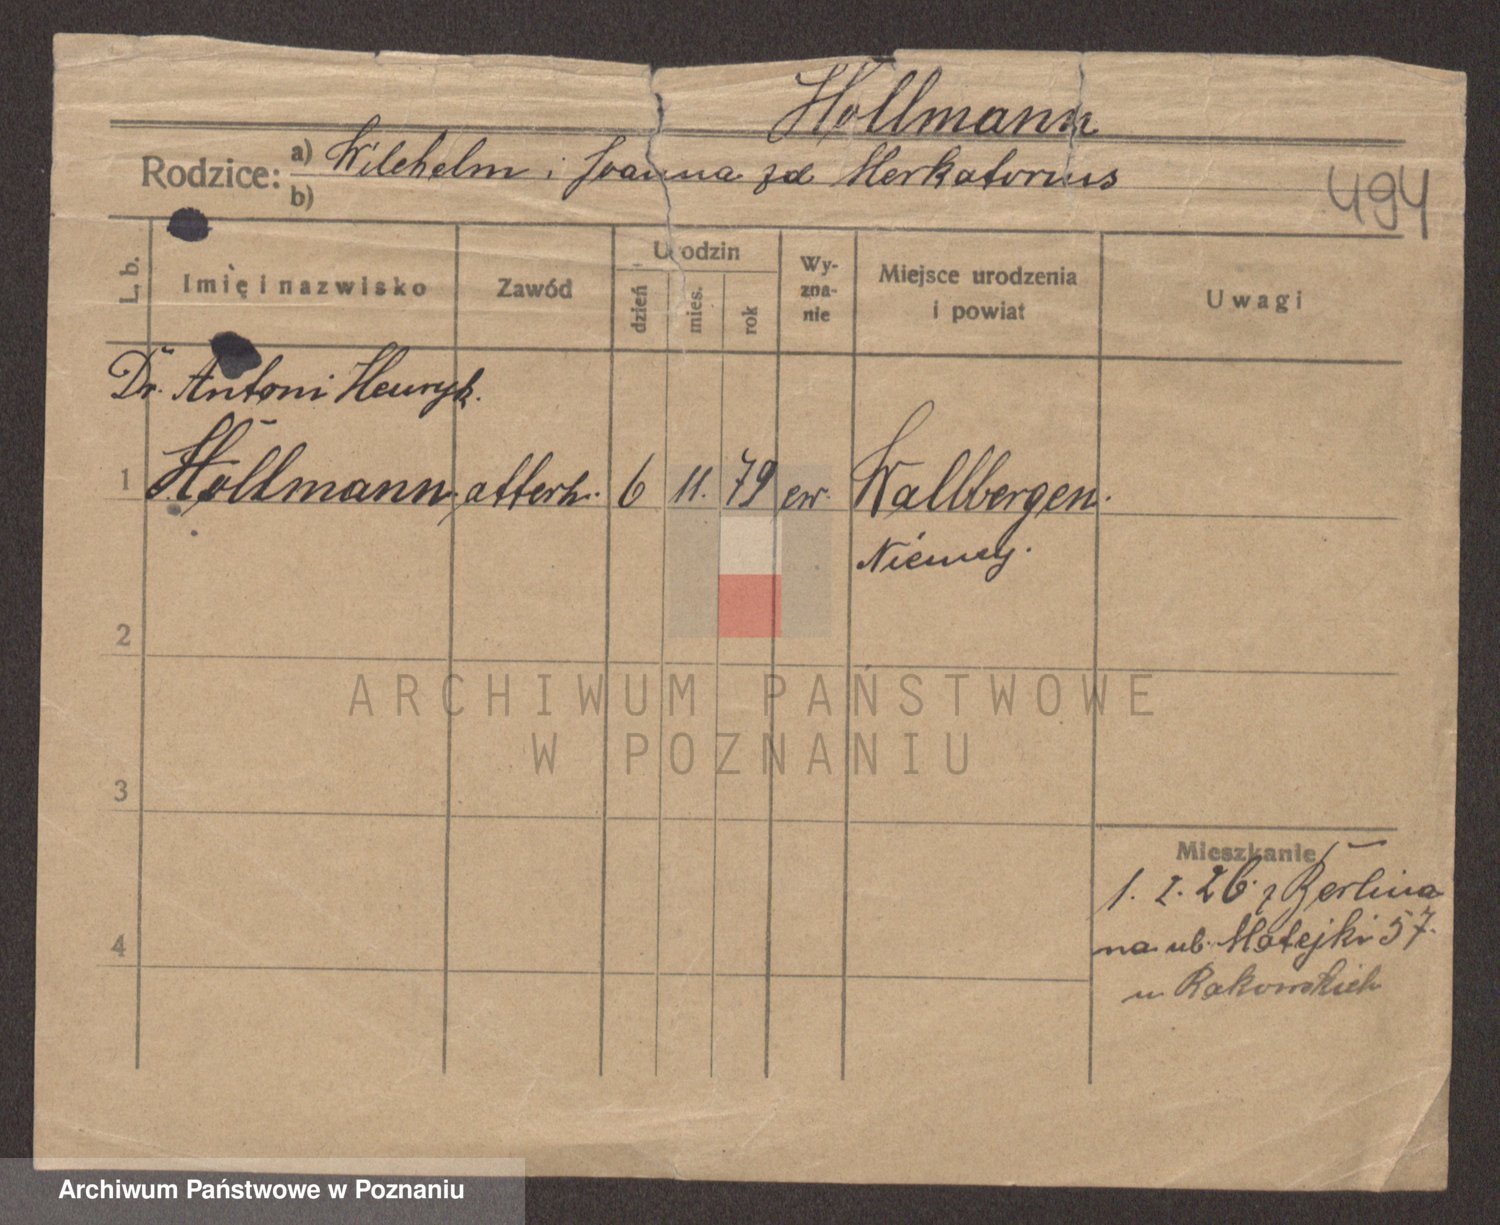 Höllmann
Rodzice: a) Wilehelm i Joanna zd Merkatorius
b)
494
L. b.
Imię i nazwisko
Zawód
Urodzin
dzień
mies.
rok
Wy-
zna-
nie
Miejsce urodzenia
i powiat
Uwagi
Dr. Antoni Henryk.
1 Höllmann atterh. 6 11. 79 ew. Wallbergen.
Niemcy.
2
3
4
Mieszkanie
1. 2. 26. z Berlina
na ul. Matejki 57.
u Rakowskich
ARCHIWUM PAŃSTWOWE
W POZNANIU
Archiwum Państwowe w Poznaniu